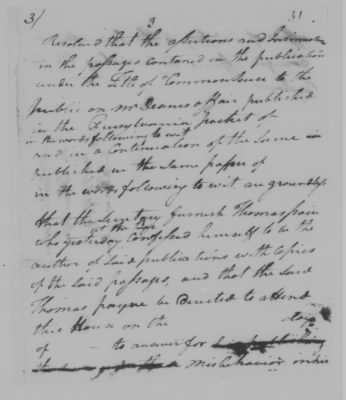 3/ 3 31
resolved that the assertions and Insinuations
in the passages contained in the publication
under the Title of "Common Sense to the
public on Mr Deanes affair published
in the Pensylvania packet of
in the words following to wit
and in a Continuation of the same in
published in the same paper of
in the words following to wit are groundless
that the Secretary furnish Thomas pain
at the bar
who yesterday Confessed himself to be the
author of said publications with copies
of the said passages, and that the said
Thomas payne be directed to attend
this House on the day
of to answer for
a misbehavior in his